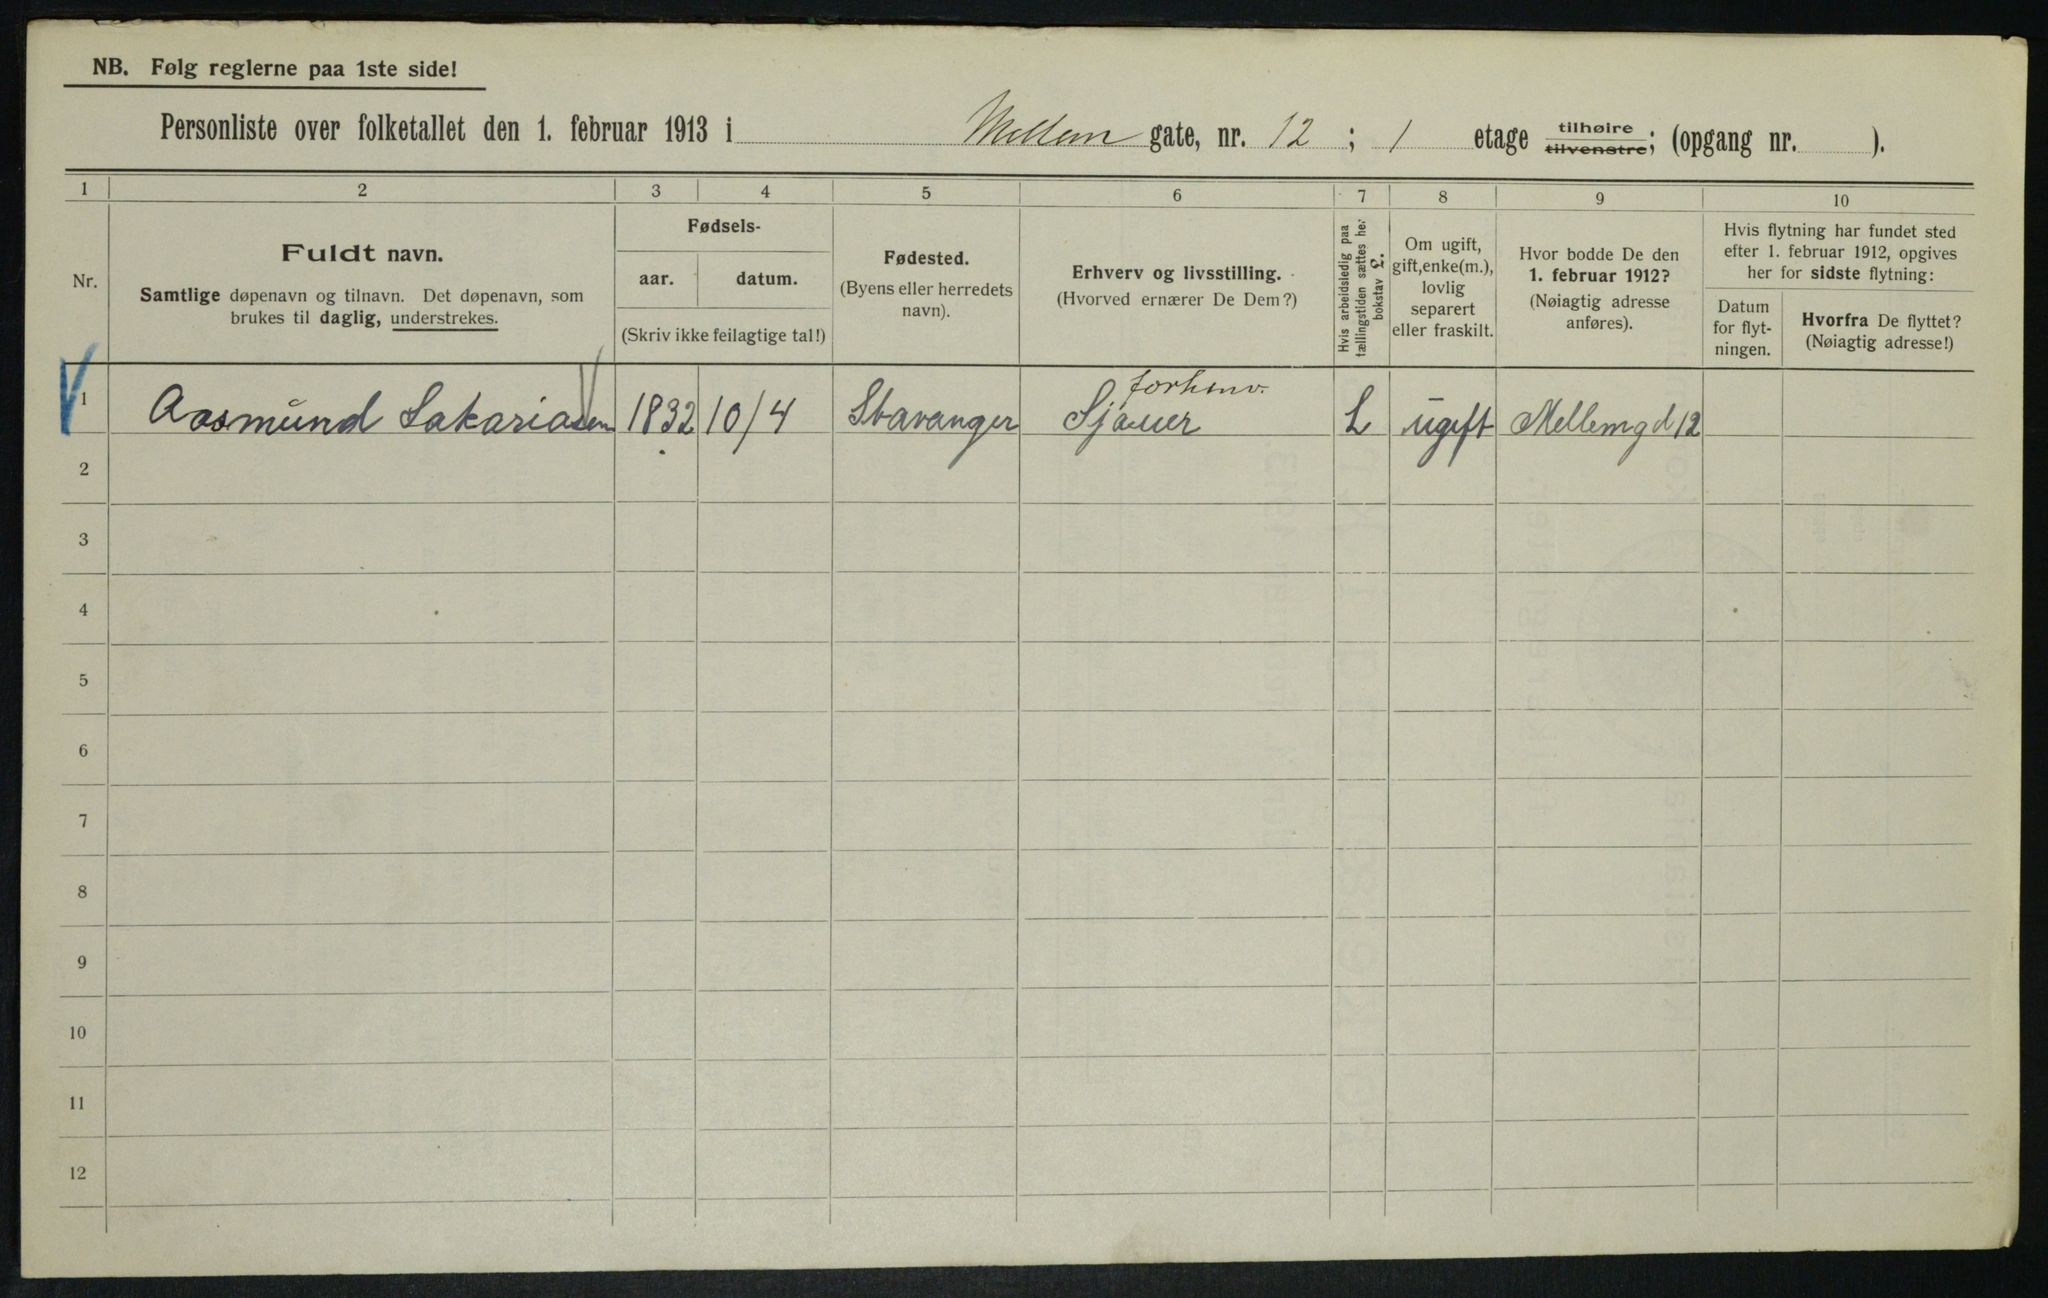 NB. Følg reglerne paa 1ste side!
Personliste over folketallet den 1. februar 1913 i Mellem gate, nr. 12 ; 1 etage tilhøire tilvenstre; (opgang nr. ).
1 2 3 4 5 6 7 8 9 10
Nr.
Fuldt navn.
Samtlige døpenavn og tilnavn. Det døpenavn, som
brukes til daglig, understrekes.
Fødsels-
aar. datum.
(Skriv ikke feilagtige tal!)
Fødested.
(Byens eller herredets
navn).
Erhverv og livsstilling.
(Hvorved ernærer De Dem?)
Hvis arbeidsledig paa
tællingstiden sættes her
bokstav L.
Om ugift,
gift, enke(m.),
lovlig
separert
eller fraskilt.
Hvor bodde De den
1. februar 1912?
(Nøiagtig adresse
anføres).
Hvis flytning har fundet sted
efter 1. februar 1912, opgives
her for sidste flytning:
Datum
for flyt-
ningen.
Hvorfra De flyttet?
(Nøiagtig adresse!)
forhenv.
1 Aasmund Sakariasen 1832 10/4 Stavanger Sjauer L ugift Mellemgd 12
2
3
4
5
6
7
8
9
10
11
12